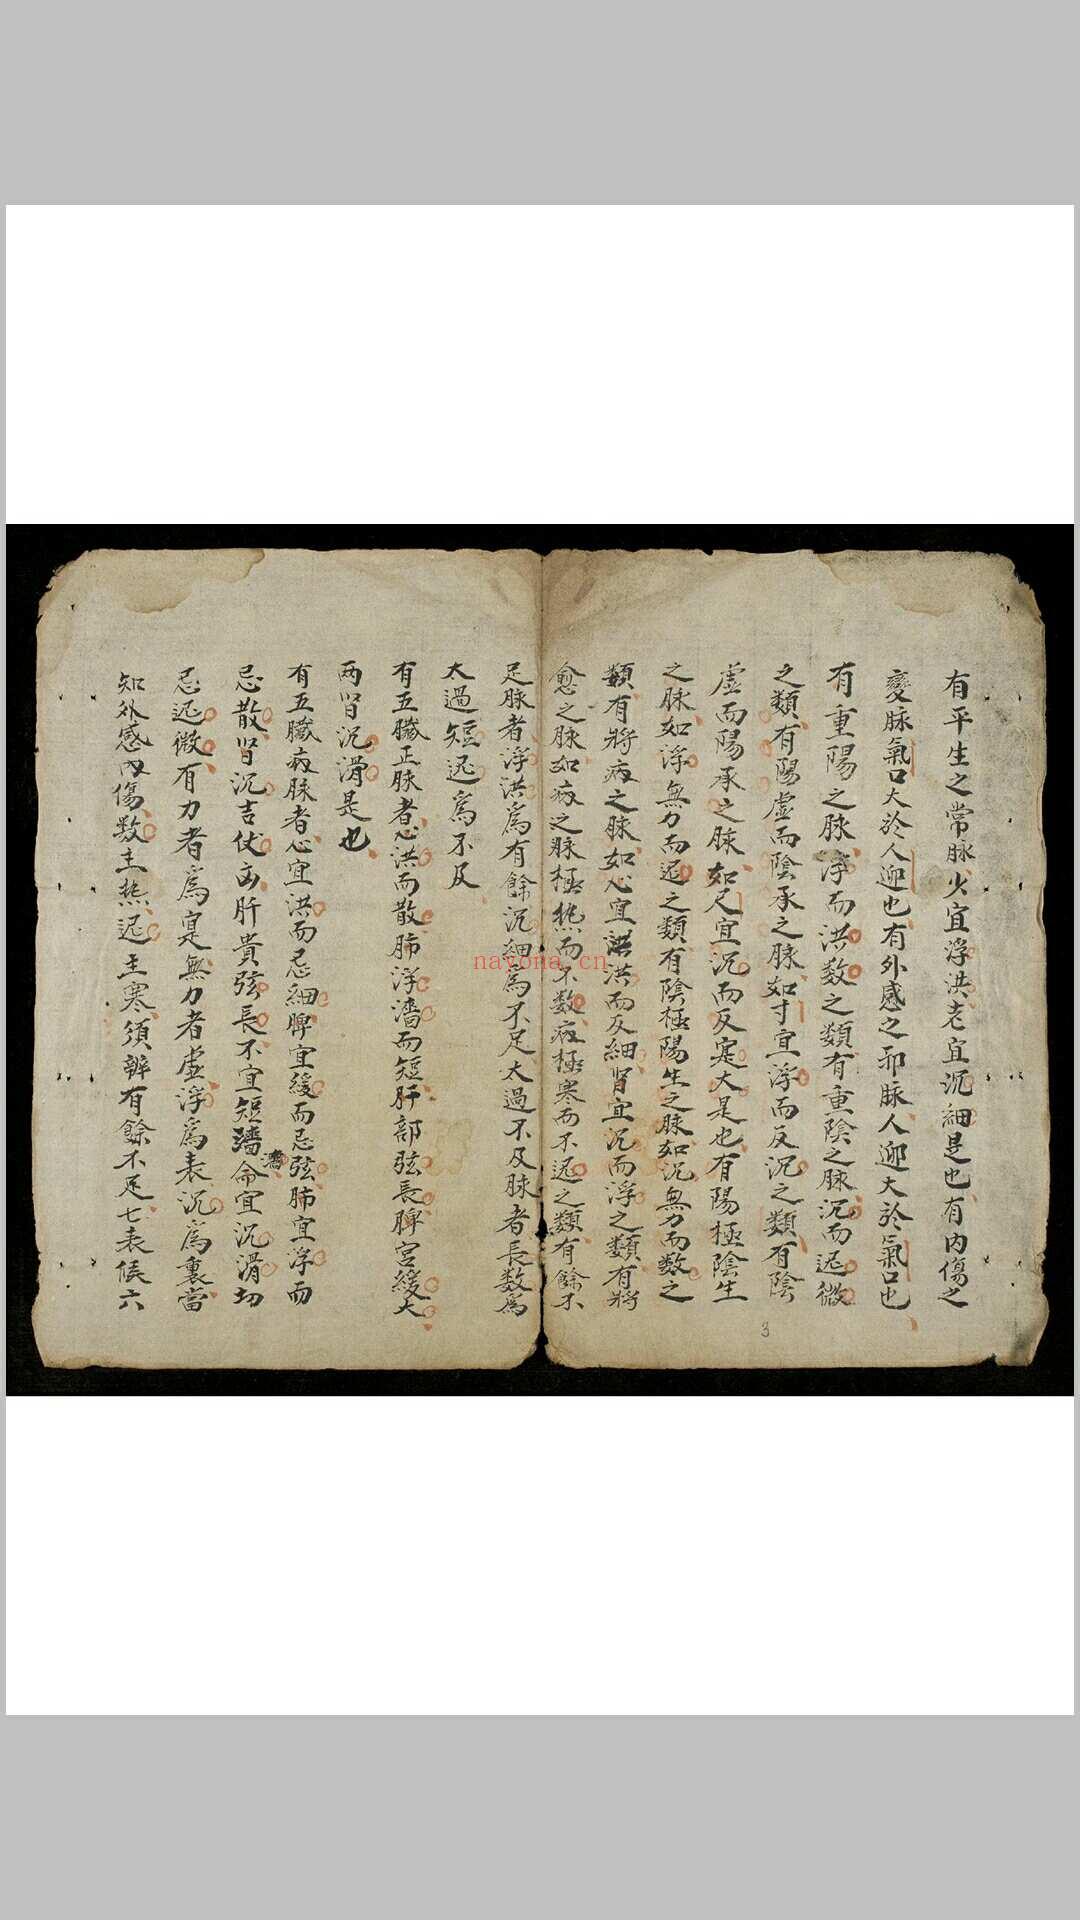 有平生之常脉少宜浮洪老宜沉細是也有内傷之
變脉氣口大於人迎也有外感之邪脉人迎大於氣口也
有重陽之脉浮而洪数之類有重陰之脉沉而迟微
之類有陽虚而陰承之脉如寸宜浮而反沉之類有陰
虚而陽承之脉如尺宜沉而反寔大是也有陽極陰生
之脉如浮無力而迟之類有陰極陽生之脉如沉無力而数之
類有將病之脉如心宜洪洪而反細肾宜沉而浮之類有將
愈之脉如病之脉極热而不数病極寒而不迟之類有餘不
足脉者浮洪為有餘沉細為不足太過不及脉者長数為
太過短迟為不及
有五臟正脉者心洪而散肺浮濇而短肝部弦長脾宫緩大
两肾沉滑是也
有五臟病脉者心宜洪而忌細脾宜緩而忌弦肺宜浮而
忌散肾沉吉伏凶肝貴弦長不宜短濇命宜沉滑切
濇
忌迟微有力者為寔無力者虚浮為表沉為裏當
知外感内傷数主热迟主寒須辨有餘不足七表候六
3
nayona.cn